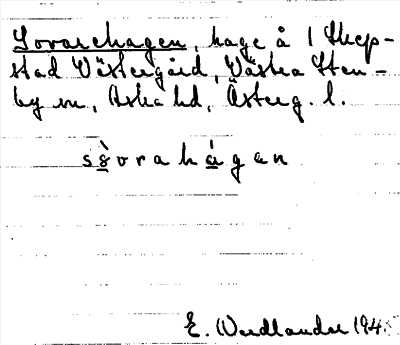 Sovarehagen, hage å 1 Skep-
stad Västergård, Västra Sten-
by sn, Aska hd, Österg. l.
sòvarahágan
E. Wedlander 194